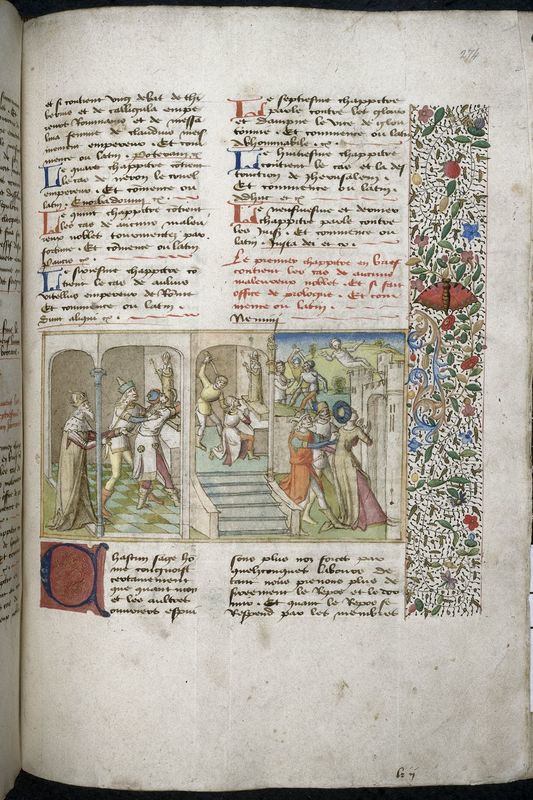 274
et si contient ung debat de thi
berius et de calligula empe
reurs Rommains et de messa
lina femme de claudius
empereur Et com
mence ou latin
Le quart chappitre contient
le cas de neron le cruel
empereur Et comence ou
latin
Le quint chappitre contient
les cas de aucuns maleu
reux nobles tourmentez par
fortune Et comence ou latin
Le sixiesme chappitre co
tient le cas de aulus
vitellius empereur de Rome
Et commence ou latin
Le septiesme chappitre
parle contre les gloutons
et dampne le vice de glou
tonnie Et commence ou latin
Le huitiesme chappitre
contient le cas et la des
truction de Jherusalem
Et commence ou latin
Le neufuiesme et dernier
chappitre parle contre
les Juifs Et commence ou
latin
Le premier chappitre en brief
contient les cas de aucuns
maleureux nobles Et si fait
office de prologue Et com
mence ou latin
Nemini
Chascun sage ho
me congnoist
certainement
que quant nous
et les aultres
ouvriers
sons plus noz forces par
quelzconques labours de
tant nous prenons plus de
le Repos et le dor
mir Et quant le Repos se
Respend par les membres